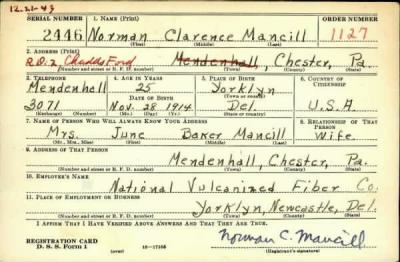 12-21-43
SERIAL NUMBER 1. NAME (Print) ORDER NUMBER
2446 Norman Clarence Mancill 1127
(First) (Middle) (Last)
2. ADDRESS (Print)
R.D.2, Chadds Ford Mendenhall, Chester, Pa.
(Number and street or R. F. D. number) (Town) (County) (State)
3. TELEPHONE 4. AGE IN YEARS 5. PLACE OF BIRTH 6. COUNTRY OF CITIZENSHIP
Mendenhall 25 Yorklyn
DATE OF BIRTH (Town or county)
3071 Nov. 28 1914 Del. U.S.A.
(Exchange) (Number) (Mo.) (Day) (Yr.) (State or country)
7. NAME OF PERSON WHO WILL ALWAYS KNOW YOUR ADDRESS 8. RELATIONSHIP OF THAT PERSON
Mrs. June Baker Mancill Wife
(Mr., Mrs., Miss) (First) (Middle) (Last)
9. ADDRESS OF THAT PERSON
Mendenhall, Chester, Pa.
(Number and street or R. F. D. number) (Town) (County) (State)
10. EMPLOYER'S NAME
National Vulcanized Fiber Co.
11. PLACE OF EMPLOYMENT OR BUSINESS
Yorklyn, Newcastle, Del.
(Number and street or R. F. D. number) (Town) (County) (State)
I AFFIRM THAT I HAVE VERIFIED ABOVE ANSWERS AND THAT THEY ARE TRUE.
REGISTRATION CARD Norman C. Mancill
D. S. S. Form 1 (over) 16—17105 (Registrant's signature)